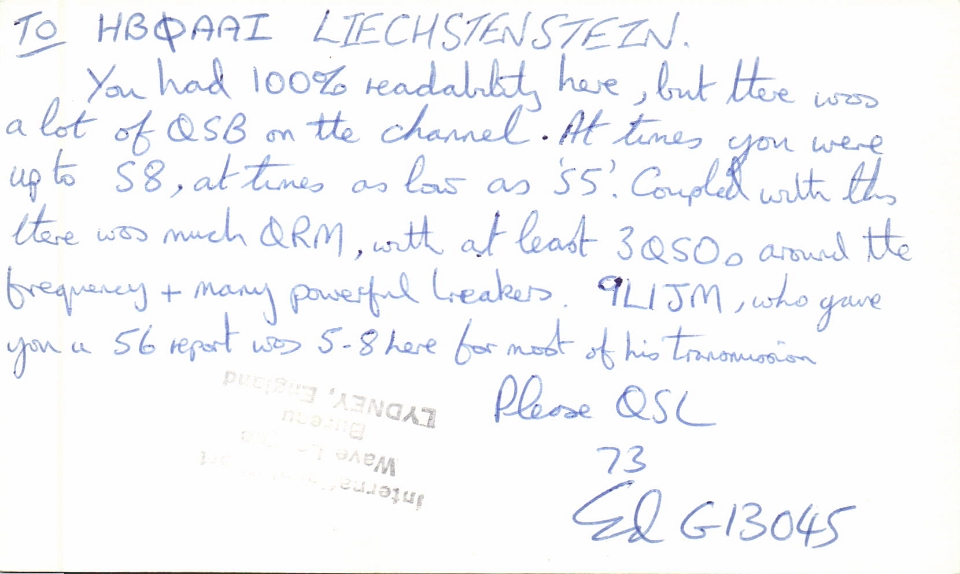 TO HBØAAI LIECHSTENSTEIN.
You had 100% readability here, but there was
a lot of QSB on the channel. At times you were
up to S8, at times as low as 'S5'. Coupled with this
there was much QRM, with at least 3 QSOs around the
frequency + many powerful breakers. 9L1JM, who gave
you a 56 report was 5-8 here for most of his transmission
Please QSL
73
Ed G13045
International
Wave
Bureau
LYDNEY, England